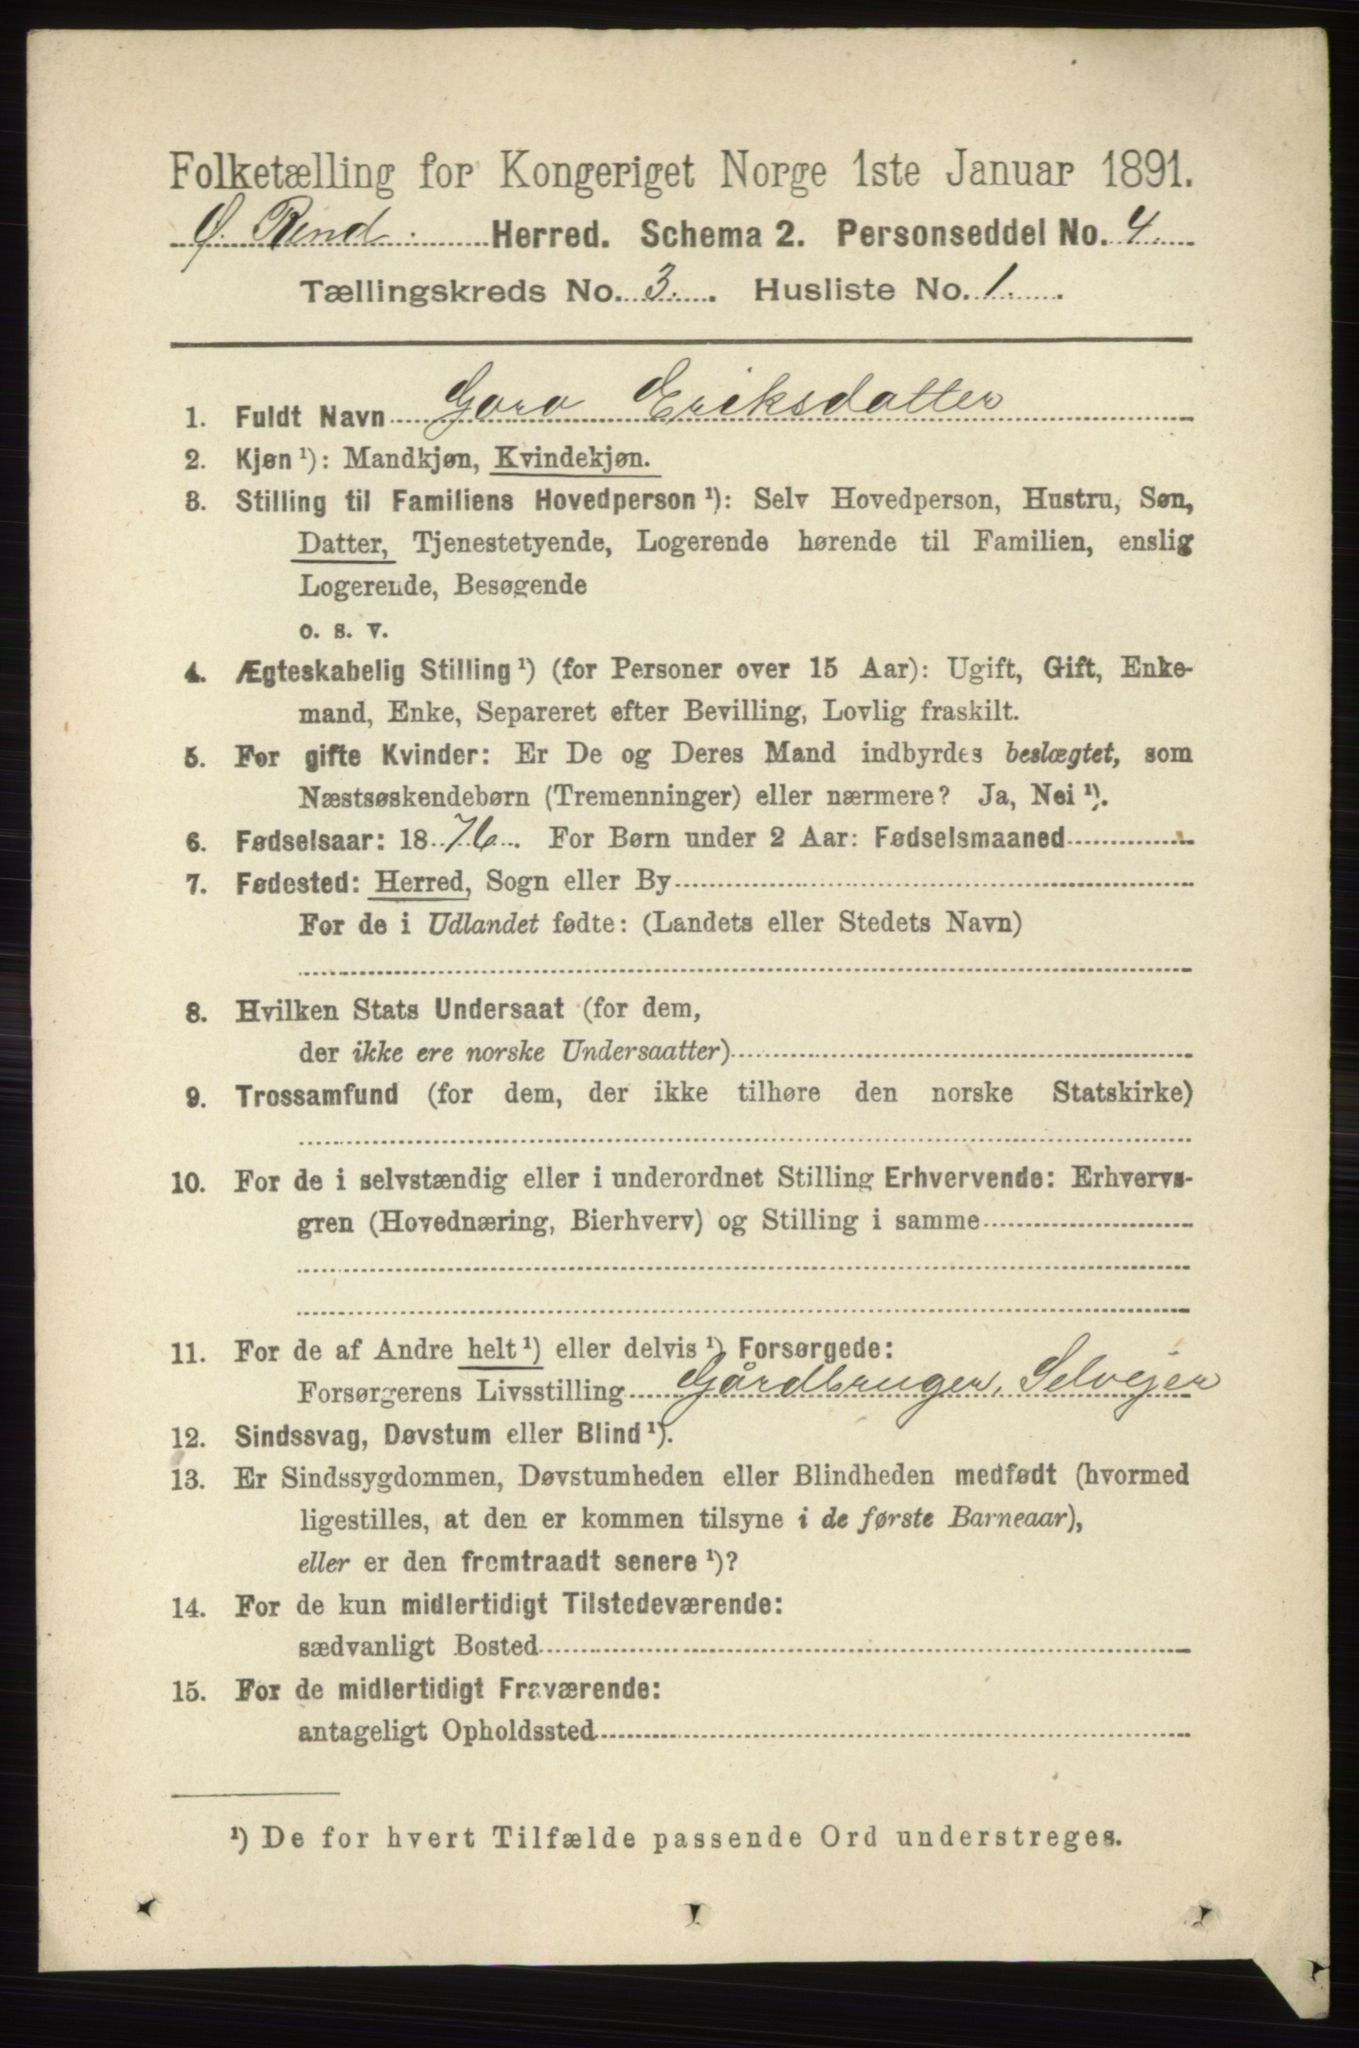 Folketælling for Kongeriget Norge 1ste Januar 1891.
Ø. Rend. Herred. Schema 2. Personseddel No. 4.
Tællingskreds No. 3. Husliste No. 1.
1. Fuldt Navn Goro Eriksdatter
2. Kjøn ¹): Mandkjøn, Kvindekjøn.
3. Stilling til Familiens Hovedperson ¹): Selv Hovedperson, Hustru, Søn,
Datter, Tjenestetyende, Logerende hørende til Familien, enslig
Logerende, Besøgende
o. s. v.
4. Ægteskabelig Stilling ¹) (for Personer over 15 Aar): Ugift, Gift, Enke-
mand, Enke, Separeret efter Bevilling, Lovlig fraskilt.
5. For gifte Kvinder: Er De og Deres Mand indbyrdes beslægtet, som
Næstsøskendebørn (Tremenninger) eller nærmere? Ja, Nei ¹).
6. Fødselsaar: 1876. For Børn under 2 Aar: Fødselsmaaned
7. Fødested: Herred, Sogn eller By
For de i Udlandet fødte: (Landets eller Stedets Navn)
8. Hvilken Stats Undersaat (for dem,
der ikke ere norske Undersaatter)
9. Trossamfund (for dem, der ikke tilhøre den norske Statskirke)
10. For de i selvstændig eller i underordnet Stilling Erhvervende: Erhvervs-
gren (Hovednæring, Bierhverv) og Stilling i samme
11. For de af Andre helt ¹) eller delvis ¹) Forsørgede:
Forsørgerens Livsstilling Gårdbruger, Selvejer
12. Sindssvag, Døvstum eller Blind ¹).
13. Er Sindssygdommen, Døvstumheden eller Blindheden medfødt (hvormed
ligestilles, at den er kommen tilsyne i de første Barneaar),
eller er den fremtraadt senere ¹)?
14. For de kun midlertidigt Tilstedeværende:
sædvanligt Bosted
15. For de midlertidigt Fraværende:
antageligt Opholdssted
¹) De for hvert Tilfælde passende Ord understreges.